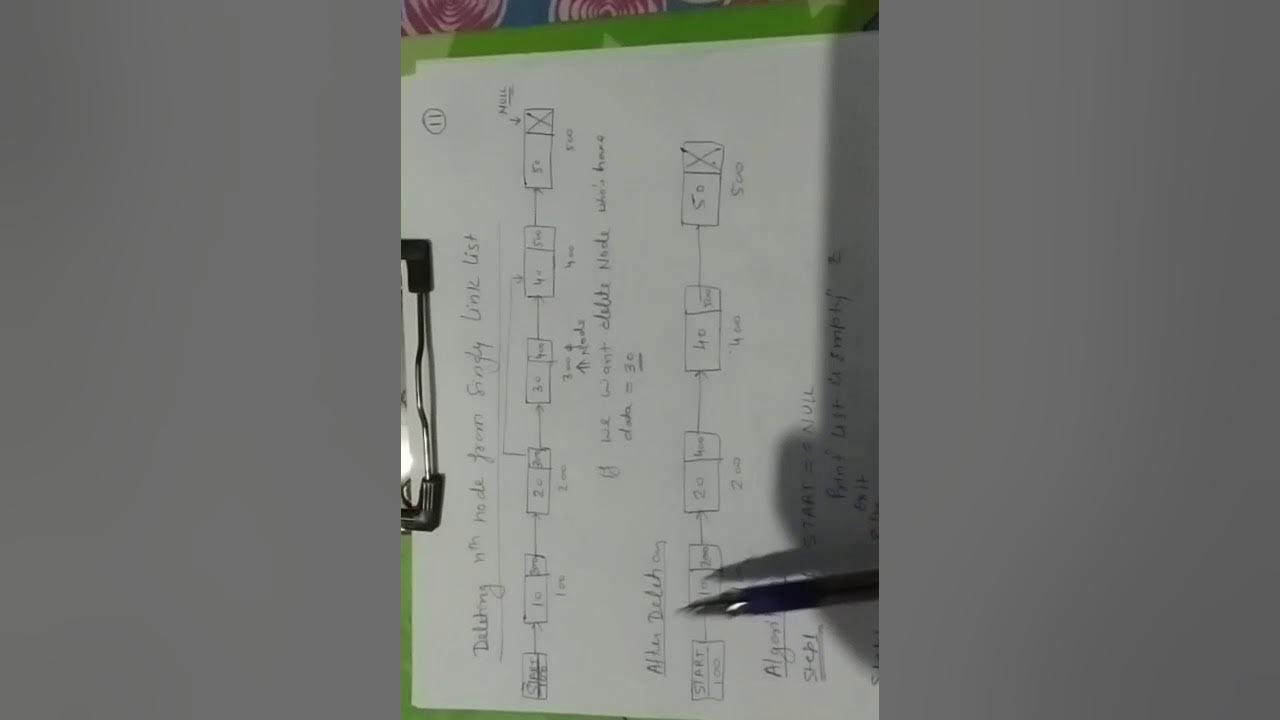 11
Deleting nth node from Singly Link List
NULL
START 100 10 200 20 30 400 40 500 50 X
100 200 300 400 500
Node
If we want delete Node who's have
data = 30
After Deletion
START 100 10 200 20 400 40 500 50 X
200 400 500
Step1 START == NULL
Print List is empty" &
exit